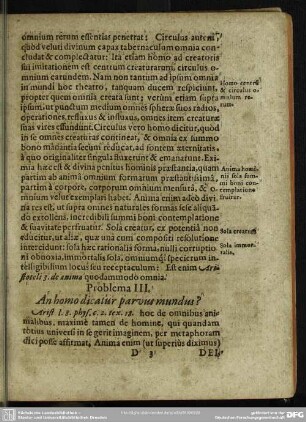 omnium rerum essentias penetrat: Circulus autem
quòd veluti divinum capax tabernaculum omnia con-
cludat & complectatur: Ita etiam homo ad creatoris
sui imitationem est centrum creaturarum, circulus o-
mnium earundem. Nam non tantum ad ipsum omnia
in mundi hoc theatro, tanquam ducem respiciunt,
propter quem omnia creata sunt; verum etiam supra
ipsum, ut punctum medium omnes sphæræ suos radios,
operationes, refluxus & influxus, omnes item creaturæ
suas vires effundunt. Circulus vero homo dicitur, quòd
in se omnes creaturas contineat, & omnia ex summo
bono manantia secum reducat, ad fontem æternitatis,
à quo originaliter singula fluxerunt & emanarunt. Exi-
mia hæc est & divina penitus hominis præstantia, quam
partim ab animâ omnium formarum præstantissimâ,
partim à corpore, corporum omnium mensurâ, & o-
mnium velut exemplari habet. Anima enim adeò divi-
na res est, ut supra omnes naturales formas sese aliquan-
dò extollens, incredibili summi boni contemplatione
& suavitate perfruatur. Sola creatur, ex potentiâ non
educitur, ut aliæ, quæ unà cum compositi resolutione
intercidunt: sola hæc rationalis forma, nulli corruptio-
ni obnoxia, sola immortalis, omniumq́; specierum in-
telligibilium locus seu receptaculum: Est enim Ari-
stoteli 3. de anima quodammodò omnia.
Homo centrũ
& circulus o-
mnium re-
rum.
Anima homi-
nis sola sum-
mi boni con-
templatione
fruitur.
Sola creatur.
Sola immor-
talis.
Problema III.
An homo dicatur parvus mundus?
Arist. l. 8. phys. c. 2. tex. 17. hoc de omnibus ani-
malibus, maximè tamen de homine, qui quandam
totius universi in se gerit imaginem, per metaphoram
dici posse affirmat. Anima enim (ut superiùs diximus)
D 3
DEI,